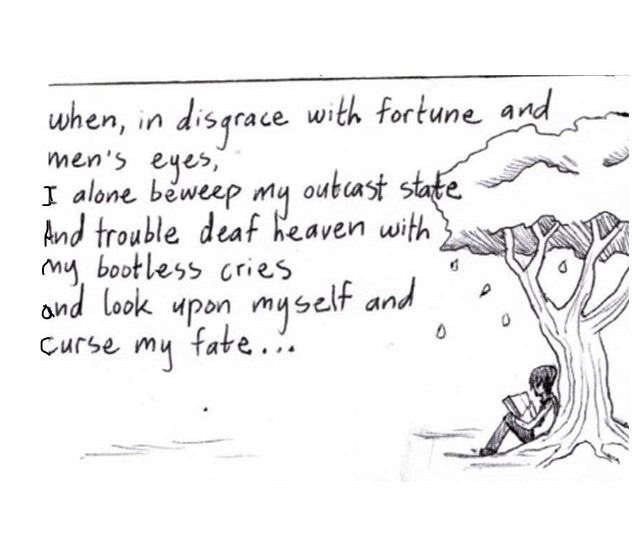 when, in disgrace with fortune and
men's eyes,
I alone beweep my outcast state
And trouble deaf heaven with
my bootless cries
and look upon myself and
curse my fate...